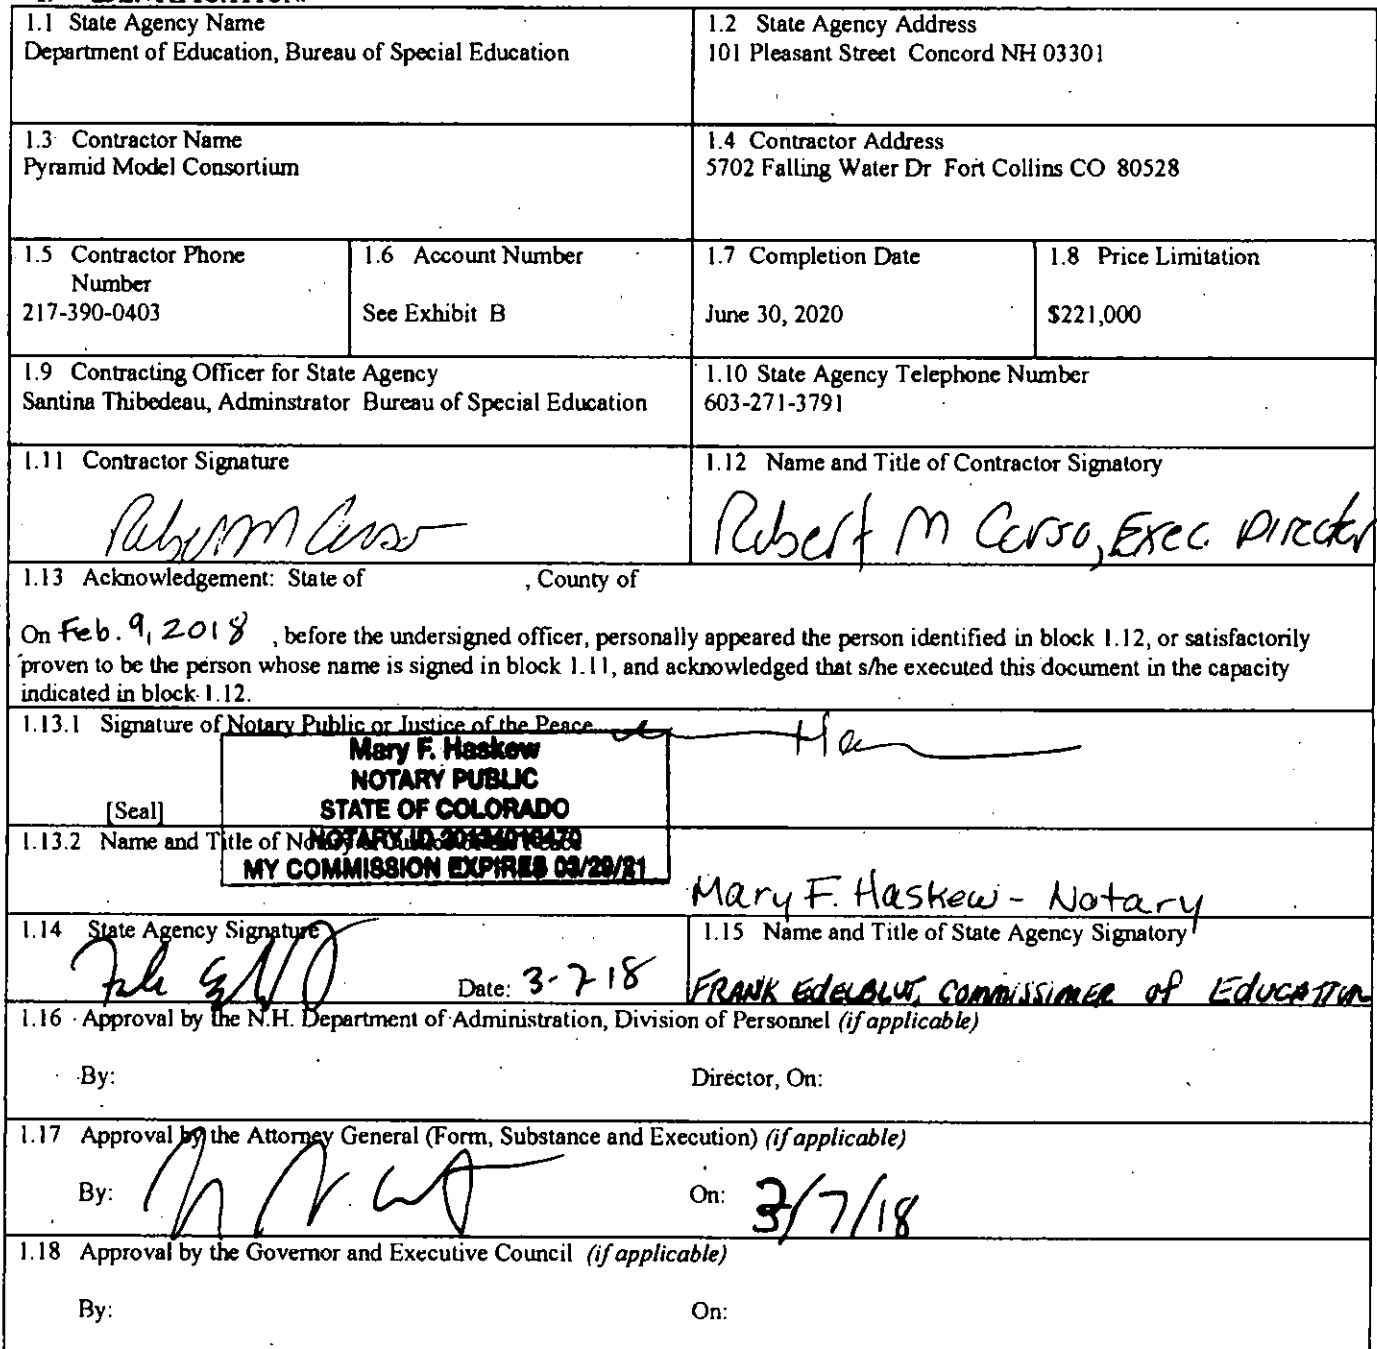 1.1 State Agency Name
Department of Education, Bureau of Special Education
1.2 State Agency Address
101 Pleasant Street Concord NH 03301
1.3 Contractor Name
Pyramid Model Consortium
1.4 Contractor Address
5702 Falling Water Dr Fort Collins CO 80528
1.5 Contractor Phone
Number
217-390-0403
1.6 Account Number
See Exhibit B
1.7 Completion Date
June 30, 2020
1.8 Price Limitation
$221,000
1.9 Contracting Officer for State Agency
Santina Thibedeau, Adminstrator Bureau of Special Education
1.10 State Agency Telephone Number
603-271-3791
1.11 Contractor Signature
1.12 Name and Title of Contractor Signatory
Robert M Corso, Exec. Director
1.13 Acknowledgement: State of , County of
On Feb. 9, 2018 , before the undersigned officer, personally appeared the person identified in block 1.12, or satisfactorily
proven to be the person whose name is signed in block 1.11, and acknowledged that s/he executed this document in the capacity
indicated in block 1.12.
1.13.1 Signature of Notary Public or Justice of the Peace
Mary F. Haskew
NOTARY PUBLIC
STATE OF COLORADO
NOTARY ID
MY COMMISSION EXPIRES 03/29/21
[Seal]
1.13.2 Name and Title of
Mary F. Haskew - Notary
1.14 State Agency Signature
Date: 3-7-18
1.15 Name and Title of State Agency Signatory
FRANK EDELBLUT, COMMISSIONER of EDUCATION
1.16 Approval by the N.H. Department of Administration, Division of Personnel (if applicable)
By: Director, On:
1.17 Approval by the Attorney General (Form, Substance and Execution) (if applicable)
By: On: 3/7/18
1.18 Approval by the Governor and Executive Council (if applicable)
By: On: